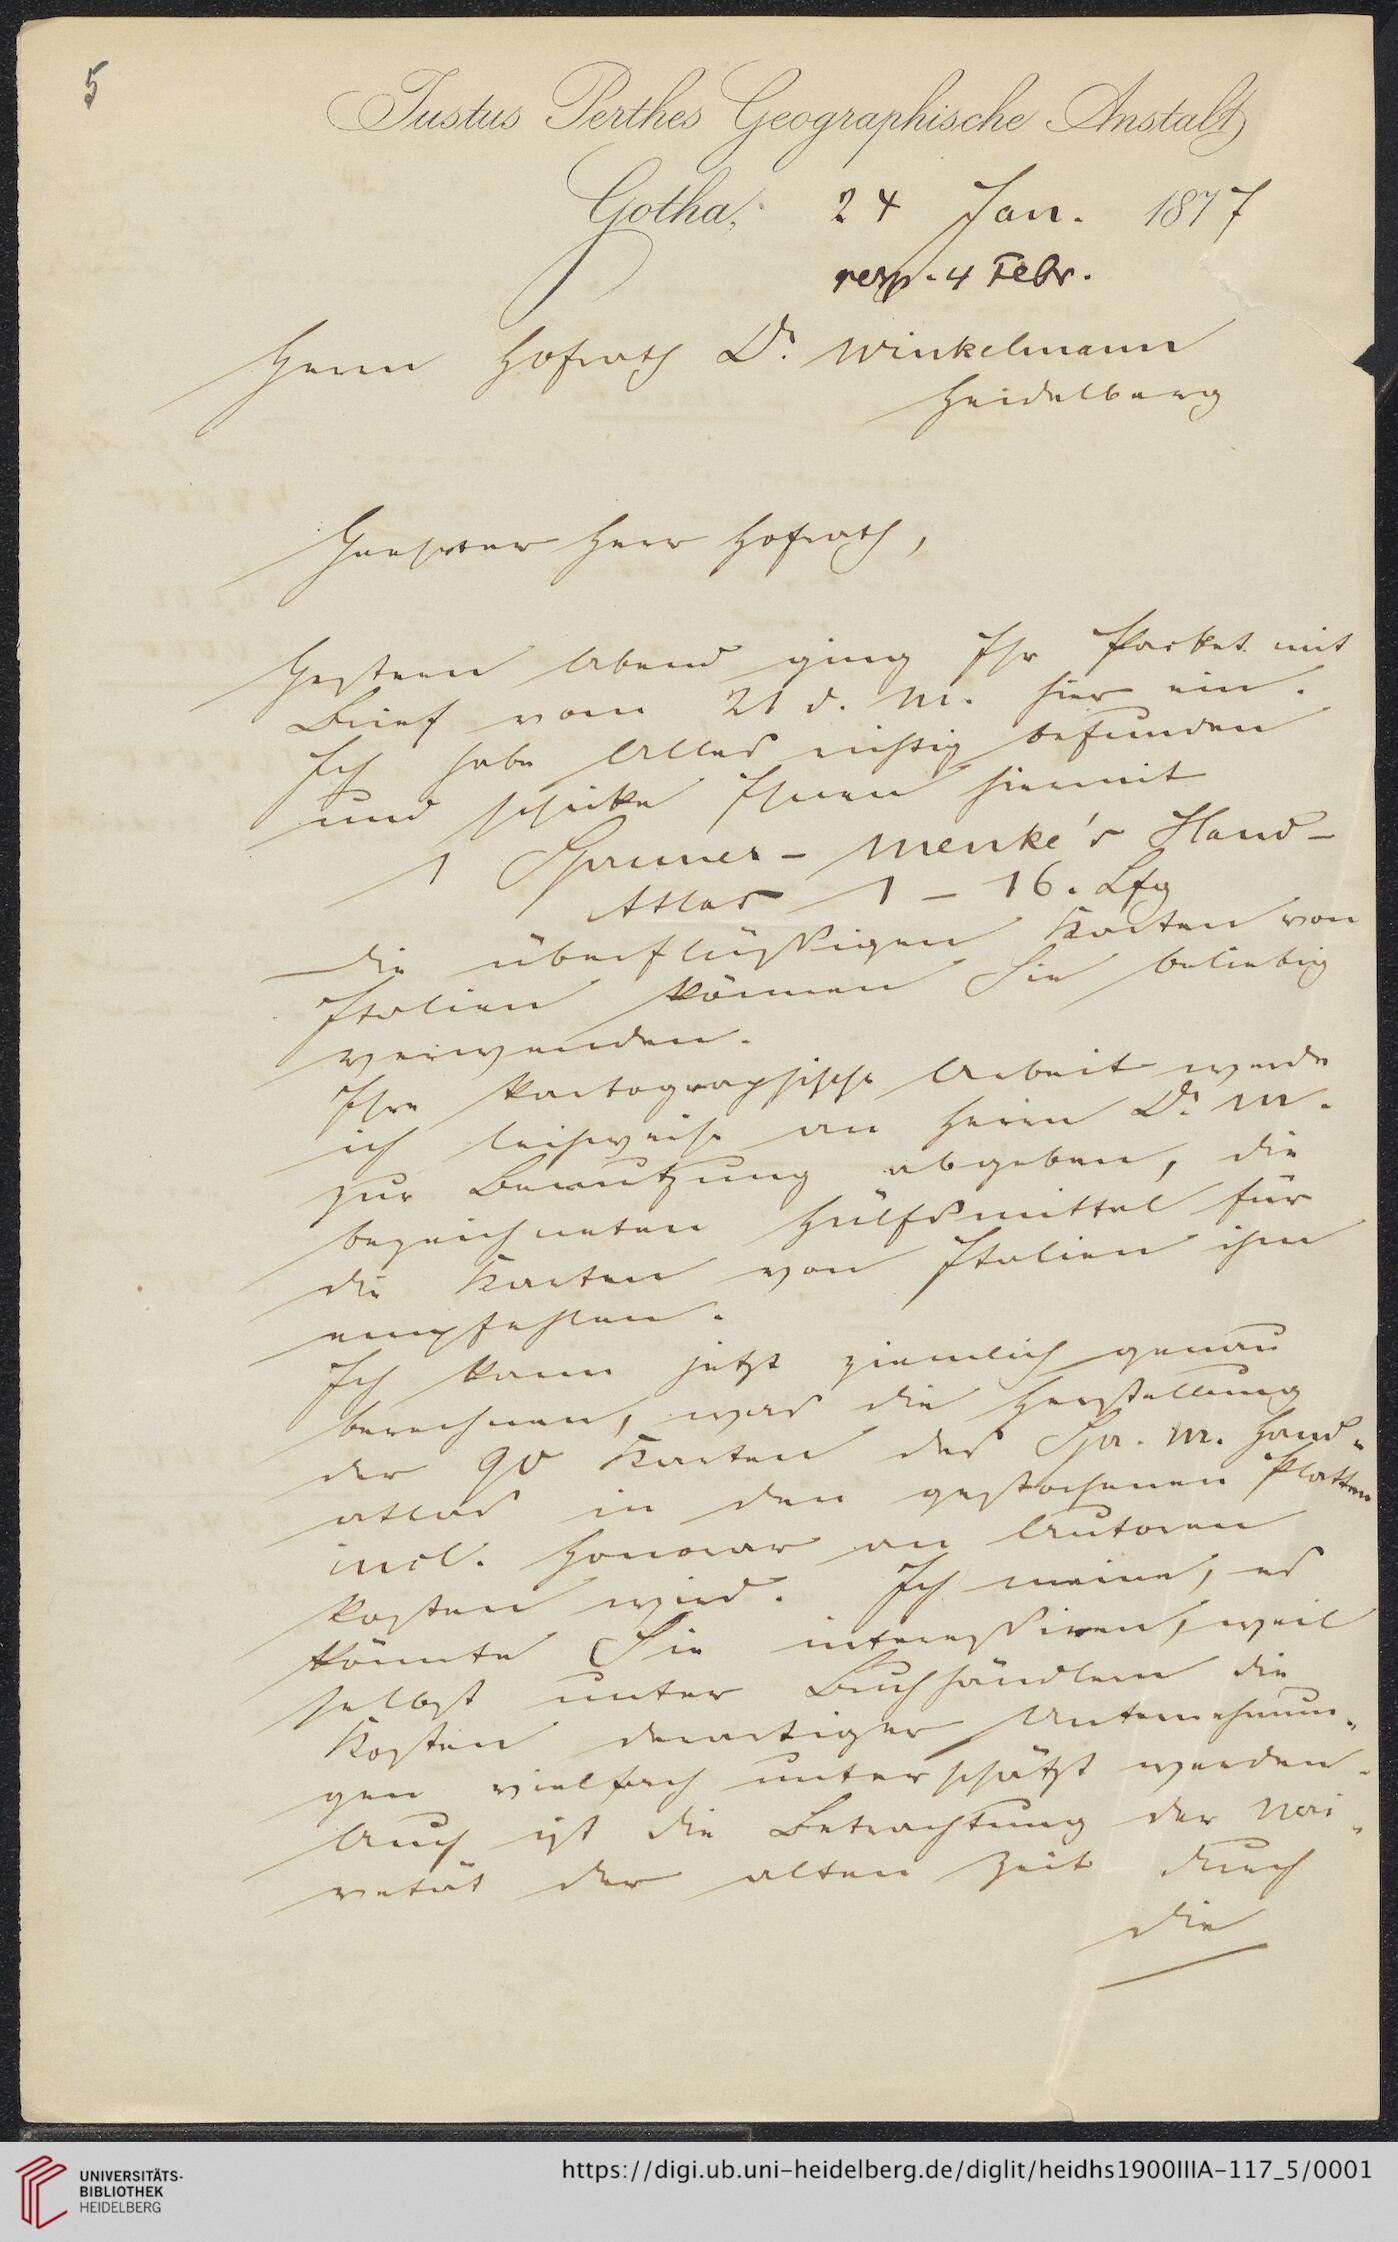 5
Justus Perthes Geographische Anstalt
Gotha, 24 Jan. 1877
resp. 4 Febr.
Herrn Hofrath Dr. Winkelmann
Heidelberg
Geehrter Herr Hofrath,
Gestern Abend ging Ihr Packet mit
Brief vom 21 d. M. hier ein.
Ich habe Alles richtig befunden
und schicke Ihnen hiermit
1 Spruner-Menke's Hand-
Atlas 1 - 16. Lfg
die überflüssigen Karten von
Italien können Sie beliebig
verwenden.
Ihre kartographische Arbeit werde
ich leihweise an Herrn Dr. M.
zur Benutzung abgeben, die
bezeichneten Hülfsmittel für
die Karten von Italien ihm
empfehlen.
Ich kann jetzt ziemlich genau
berechnen, was die Herstellung
der 90 Karten des Spr. M. Hand-
atlas in den gestochenen Platten
incl. Honorar an Autoren
kosten wird. Ich meine, es
könnte Sie interessiren, weil
selbst unter Buchhändlern die
Kosten derartiger Unternehmun-
gen vielfach unterschätzt werden.
Auch ist die Betrachtung der Nai-
vetät der alten Zeit durch
die
UNIVERSITÄTS-
BIBLIOTHEK
HEIDELBERG
https://digi.ub.uni-heidelberg.de/diglit/heidhs1900IIIA-117_5/0001